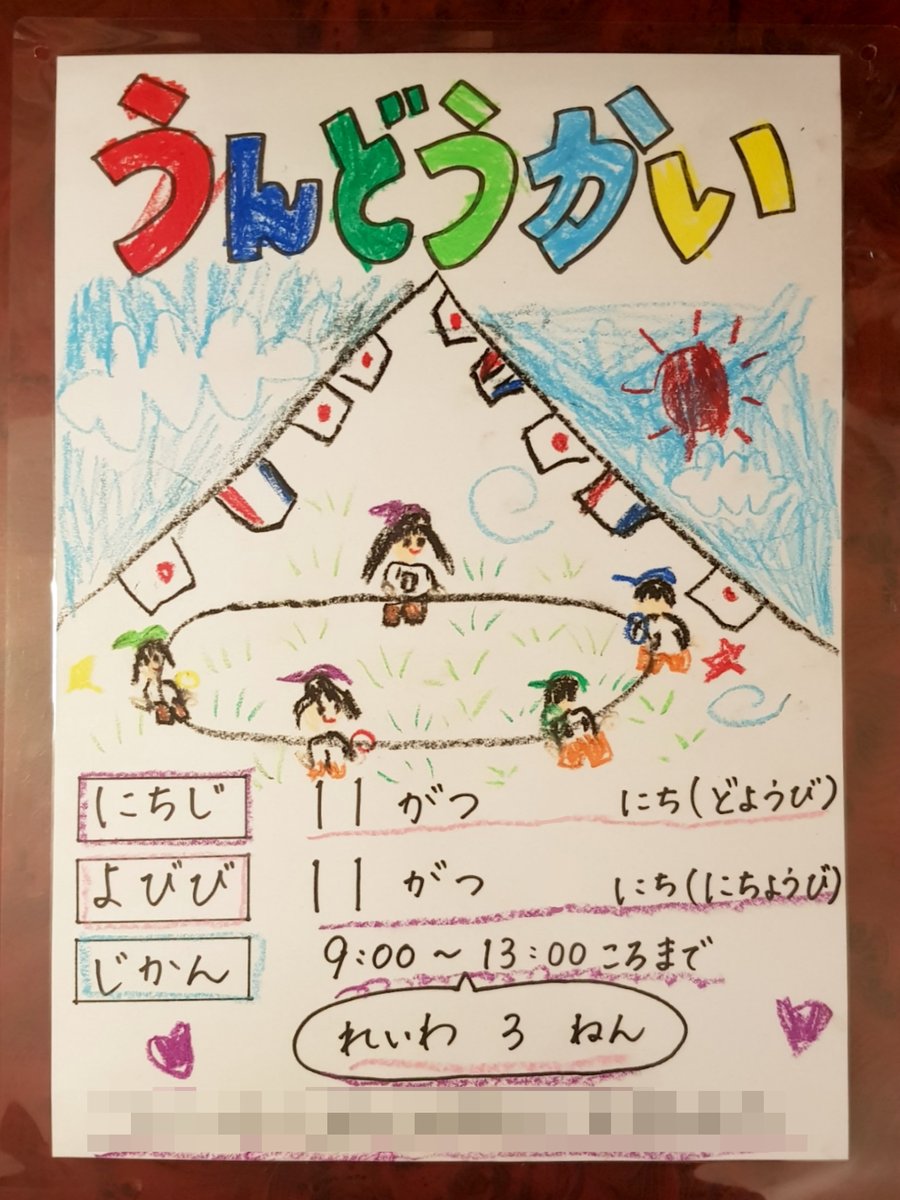 うんどうかい
にちじ 11 がつ にち(どようび)
よびび 11 がつ にち(にちようび)
じかん 9:00 ~ 13:00 ころまで
れいわ 3 ねん